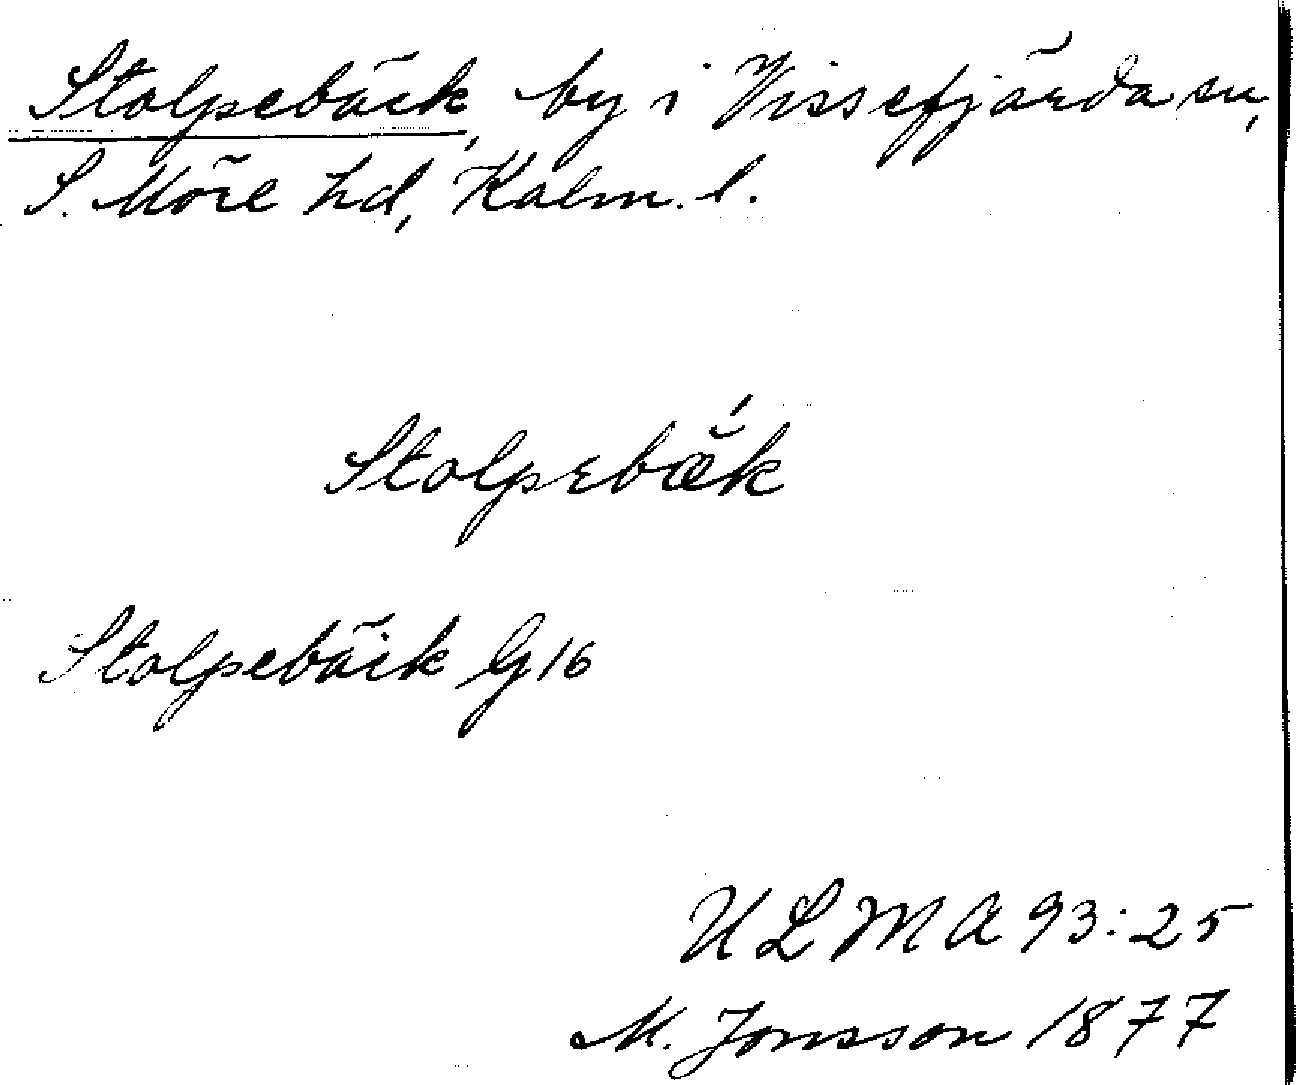 Stolpebäck, by i Vissefjärda sn,
S. Möre hd, Kalm. l.
Stolpebæ̆́k
Stolpebäck G16
ULMA 93:25
M. Jonsson 1877